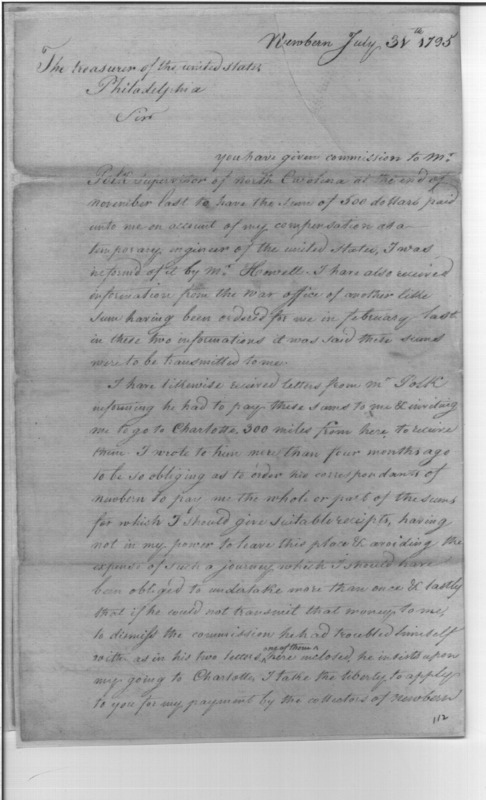 Newbern July 31th 1795
The treasurer of the united states
Philadelphia
Sir
you have given commission to Mr.
Polk supervisor of north Carolina at the end of
november last to have the sum of 500 dollars paid
unto me on account of my compensation as a
temporary engineer of the united states, I was
informd of it by Mr. Howell. I have also received
information from the war office of another like
sum having been ordered for me in february last
in these two informations it was said these sums
were to be transmitted to me.
I have likewise received letters from Mr Polk
informing he had to pay these sums to me & inviting
me to go to Charlotte, 300 miles from here, to receive
them. I wrote to him more than four months ago
to be so obliging as to order his correspondants of
newbern to pay me the whole or part of the sums
for which I should give suitable receipts, having
not in my power to leave this place & avoiding the
expense of such a journey which I should have
been obliged to undertake more than once & lastly
that if he could not transmit that money to me,
to dismiss the commission he had troubled himself
with. as in his two letters, one of them is here inclosed, he insists upon
my going to Charlotte, I take the liberty to apply
to you for my payment by the collectors of Newbern
112